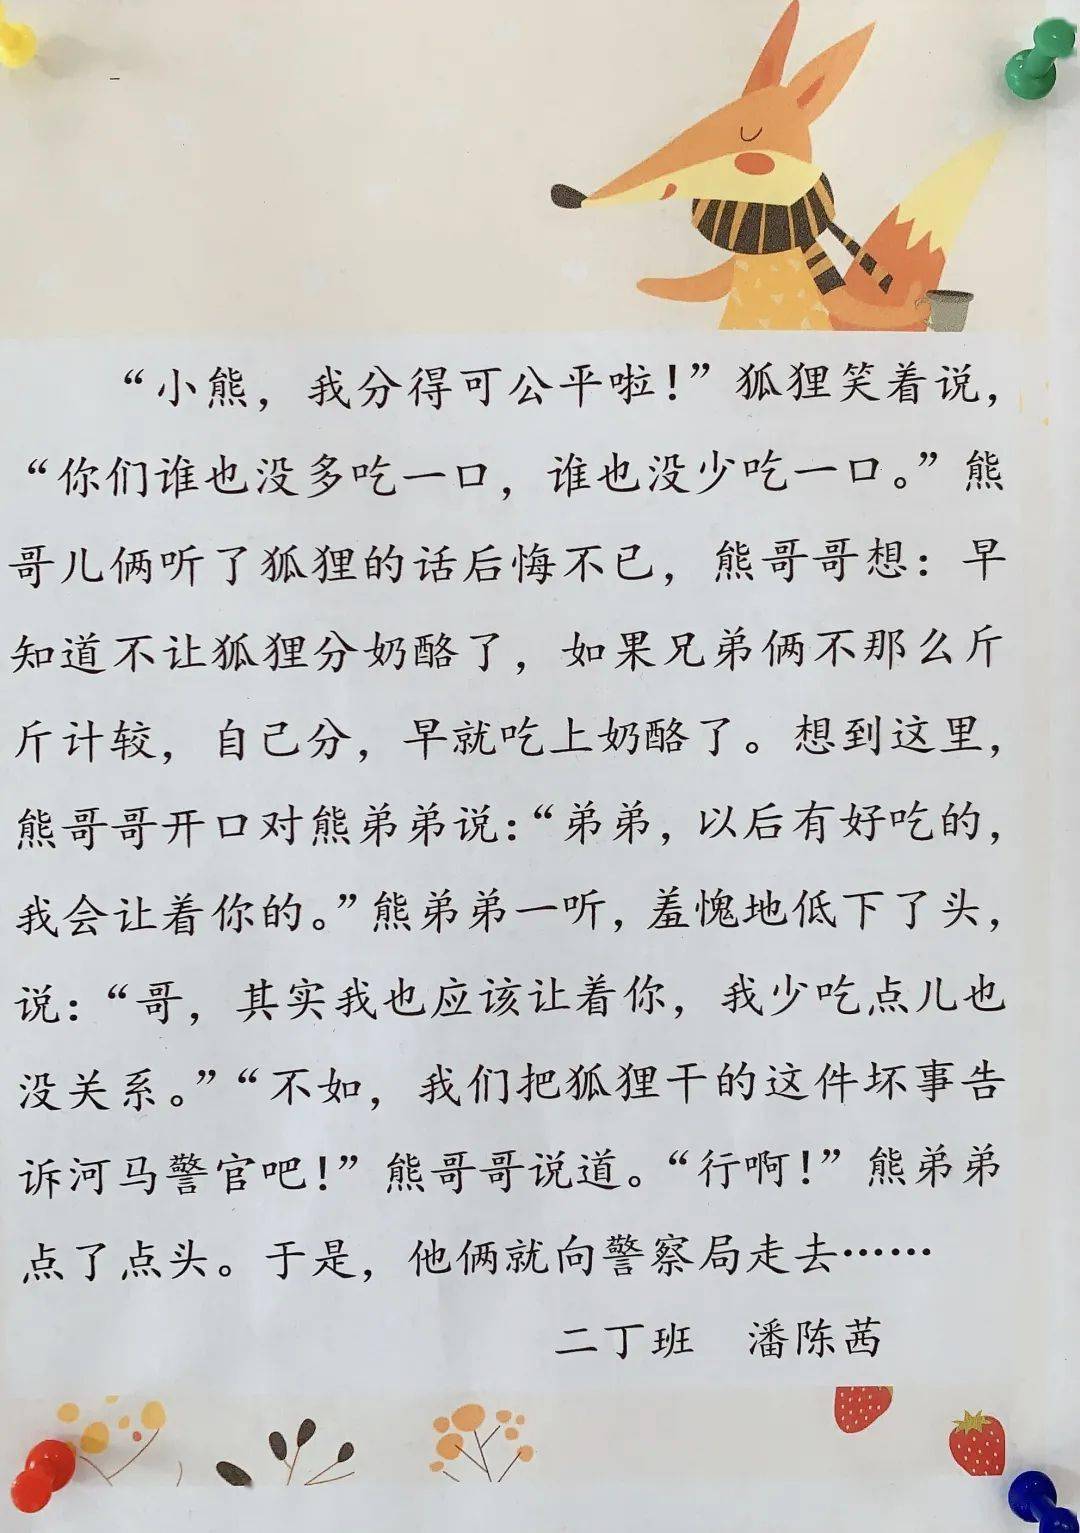 “小熊，我分得可公平啦！”狐狸笑着说，
“你们谁也没多吃一口，谁也没少吃一口。”熊
哥儿俩听了狐狸的话后悔不已，熊哥哥想：早
知道不让狐狸分奶酪了，如果兄弟俩不那么斤
斤计较，自己分，早就吃上奶酪了。想到这里，
熊哥哥开口对熊弟弟说：“弟弟，以后有好吃的，
我会让着你的。”熊弟弟一听，羞愧地低下了头，
说：“哥，其实我也应该让着你，我少吃点儿也
没关系。”“不如，我们把狐狸干的这件坏事告
诉河马警官吧！”熊哥哥说道。“行啊！”熊弟弟
点了点头。于是，他俩就向警察局走去……
二丁班　潘陈茜